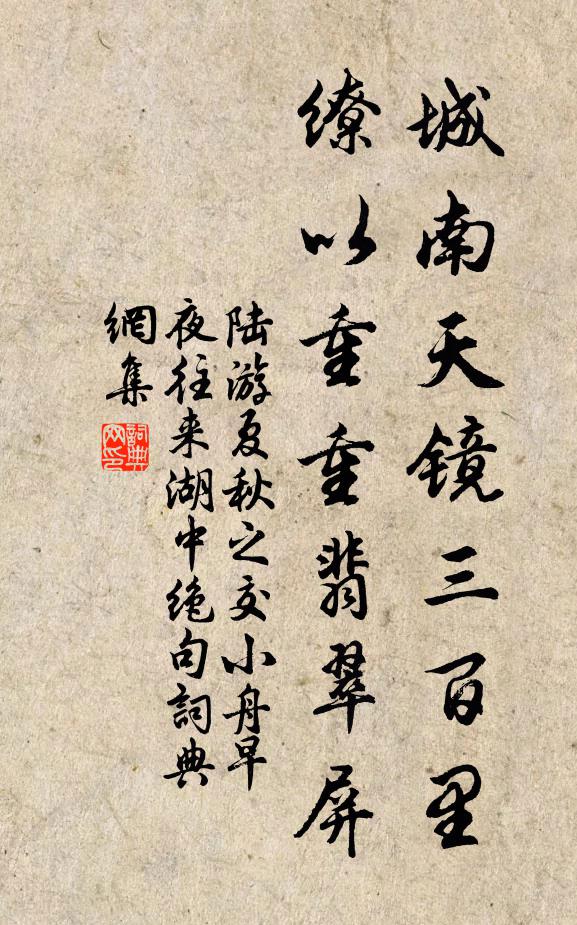 城南天镜三百里
缭以重重翡翠屏
陆游夏秋之交小舟早
夜往来湖中绝句詞典
網集
詞典
网印